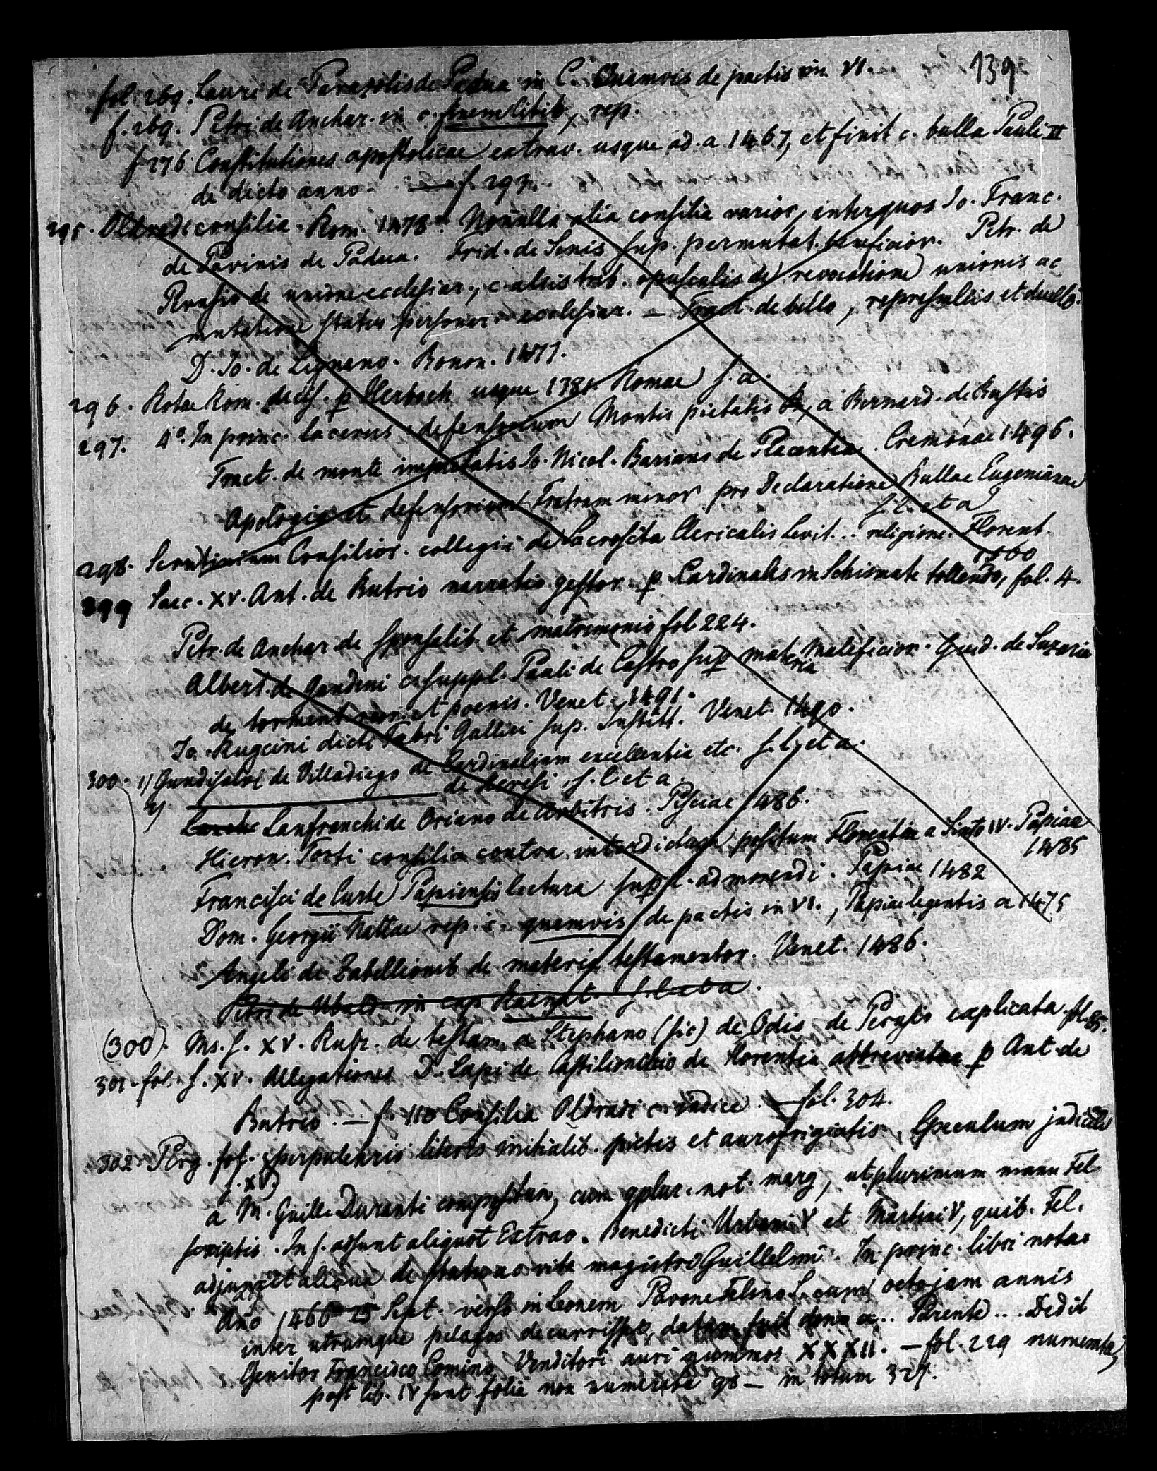 139
fol. 269. Lauri de Palazolis de Padua in C. Quamvis de pactis in VI.
f. 269. Petri de Anchar. in c. rep.
f 276 Constitutiones apostolicae extrav. usque ad a. 1467, et finit c. bulla Pauli II
de dicto anno — f. 293.
295. Oldradi consilia. Rom. 1478. Nonnulla alia consilia varior, inter quos Jo. Franc.
de Pavinis de Padua. Frid. de Senis sup. permutat. beneficior. Petr. de
de unione ecclesiar., c. aliis trib. opusculis de revocatione unionis ac
mutatione status personar. ecclesiar. — Tract. de bello, represaliis et duello
D. Jo. de Lignano. Bonon. 1477.
296. Rotae Rom. decis. p Herboch usque 1381 Romae s. a.
297. 4°. In princ. lacerus. defensorium Montis pietatis a Bernard. de Bustis
Tract. de monte impietatis Nicol. Bariano de Placentia. Cremonae 1496.
Apologia et defensorium Fratrum minor. pro Declaratione Bullae Eugenianae
s. l. et a
298. Scrutinium Consilior. collegii de Clericalis Levit... religione. Florent.
1500
299 Saec. XV. Ant. de Butrio narratio gestor. p Cardinalis in Schismate tollendo, fol. 4.
Petr. de Anchar. de sponsalib. et matrimonio fol 224.
Albert. de Gandini c. suppl. Pauli de Castro sup materia Maleficior. Guid. de Suzaria
de tormentis et poenis. Venet. 1491.
Jo. dicti Fabri Gallici sup. Institt. Venet. 1490.
300. 1) Gundisalvi de Villadiego de Cardinalium excellentia etc. s. l. et a.
de haeresi s. l. et a.
2) Lanfranchi de Oriano de arbitris. Pisciae 1486.
Hieron. Torti consilia contra interdictum positum Florentiae a Sixto IV. Papiae
1485
Francisci de Curte Papiensis lectura sup. c. ad monendi. Papiae 1482
Dom. Georgii Nattae rep. c. quamvis de pactis in VI., Papiae legentis a 1475
Angeli de materia testamentor. Venet. 1486.
Petri de Ubald. in cap. s. l. et a.
(300) Ms. s. XV. Rubr. de testam. a Stephano (sic) de Odis de Perusio explicata fol.
301. fol. s. XV. Allegationes D. Lapi de Castilionchio de Florentia abbreviatae p Ant. de
Butrio. — f. 110 Consilia Oldradi c. indice — fol. 304.
302 Perg. fol. s. XV) perpulchris literis initialib. pictis et aurofrigiatis, Speculum judiciale
a M. Guill. Duranti compositum, cum plur. not. marg, ut plurimum manu Fel.
scriptis. In f. adsunt aliquot Extrav. Benedicti Urbani V et Martini V, quib. Fel.
adjunxit aliqua de statu ac vita magistri Guillelmi. In princ. libri nota:
Año 1466 15 Sept. verso in Leonem octo jam annis
inter utramque pelagos decurrisset, datum fuit dono a... Parente... Dedit
Genitor Francisco Comino Venditori auri nummos XXXII. — fol. 229 numerata,
post lib. IV sunt folia non numerata 98 — in totum 327.